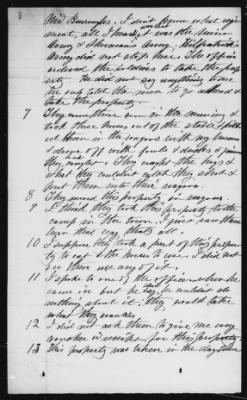 Mrs Burroughs. I didn't know what regi-
ment, all I heard it was the Union
Army & Sherman's Army. Kilpatrick's
Army did not stop here. The officer
ordered the soldiers to take the prop-
erty. He did not say anything to me
he only told the men to go ahead &
take the property.
7 They came there in the morning &
took these horses out of the stable,
corn in the wagons with my
& drove off with fowls & ducks &
they caught. They caught the hogs &
what they couldn't catch they shot &
put them into their wagons.
8 They moved this property in wagons.
9 I think they took this property to the
camp in the town. I
that's all.
10 I suppose they took a part of this proper-
ty to eat & the horses to use. I did not
see them use any of it.
11 I spoke to one of the officers when he
came in but he said he couldn't do
nothing about it; they would take
what they
12 I did not ask them to give me any
voucher or receipt for this property.
13 This property was taken in the day time